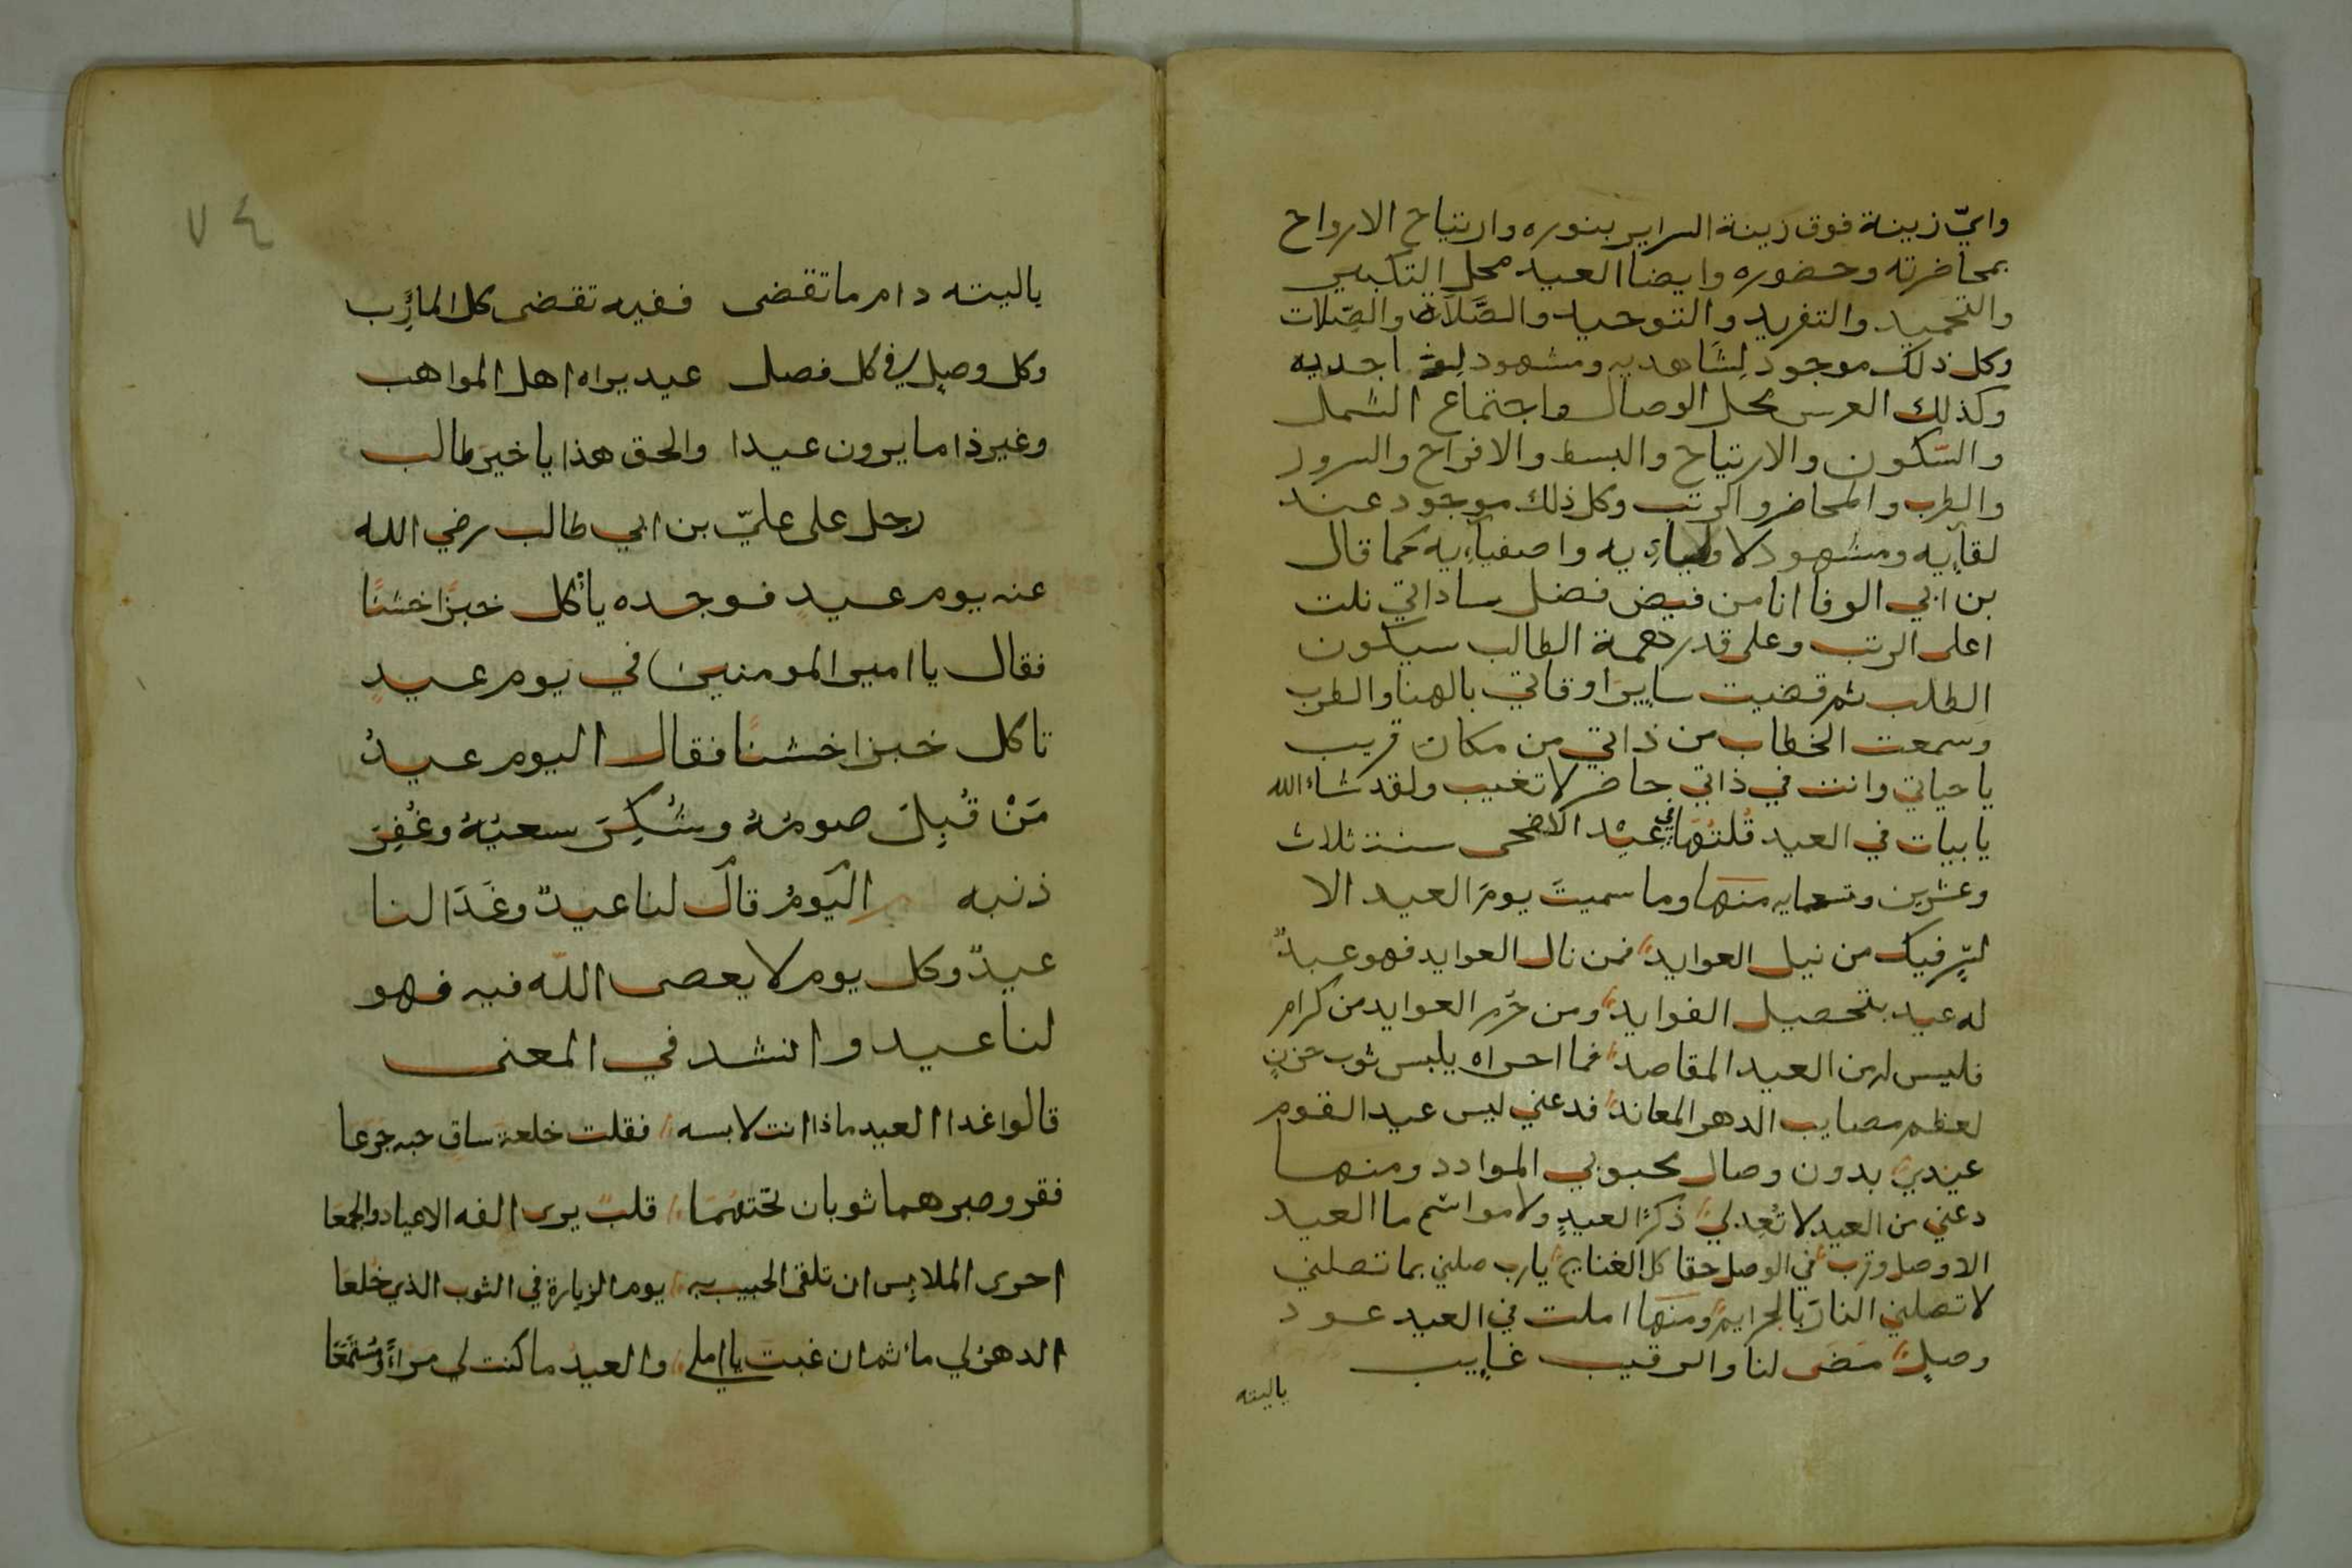 وايّ زينة فوق زينة السراير بنوره وارتياح الارواح
بمحاضرته وحضوره وايضا العيد محل التكبير
والتحميد والتفريد والتوحيد والصَّلَاة والصِّلات
وكل ذلك موجود لِشَاهديه ومشهود اجديه
وكذلك العرس محل الوصال واجتماع الشمل
والسّكون والارتياح والبسط والافراح والسرور
والطرب والمحاضر والرتب وكل ذلك موجود عند
لقايه ومشهود لاولياءيه واصفياءيه كما قال
بن ابي الوفا انا من فيض فضل ساداتي نلت
اعلى الرتب وعلى قدر همة الطالب سيكون
الطلب ثم قضيت ساير اوقاتي بالهنا والطرب
وسمعت الخطاب من ذاتي من مكان قريب
يا حياتي وانت في ذاتي حاضر لا تغيب ولقد شاء الله
بابيات في العيد قُلتُهَا في عِيْد الاضحى سنة ثلاث
وعشرين وتسعمايه منها وما سميتَ يومَ العيد الا
لسِرٍّ فيك من نيل العوايد فمن نال العوايد فهو عبدٌ
له عيد بتحصيل الفوايد ومن حُرم العوايد من كرام
فليس له من العيد المقاصد فما احراه يلبس ثوب حزنٍ
لعظم مصايب الدهر المعاند فدعني ليس عيد القوم
عيدي بدون وصال محبوبي الموادد ومنها
دعني من العيد لا تُعِد لي ذكرًا لعيدٍ ولا مواسم ما العيد
الا وصل وقرب في الوصل حقا كل الغنايم يا رب صلني بما تصلني
لا تصلني النار بالجرايم ومنها املت في العيد عود
وصلٍ مضى لنا والرقيب غايب
ياليته
٧٤
ياليته دام ما تقضى ففيه تقضى كل المآرِب
وكل وصلٍ في كل فصل عيد يراه اهل المواهب
وغير ذا ما يرون عيدا والحق هذا يا خير طالب
رجل على عليّ بن ابي طالب رضي الله
عنه يوم عيدٍ فوجده يأكل خبزًا خشنًا
فقال يا امير المومنين في يوم عيدٍ
تاكل خبزا خشنًا فقال اليوم عيدُ
مَنْ قُبِلَ صومُهُ وشُكِرَ سعيُهُ وغُفِرَ
ذنبه اليَومُ قال لنا عيدٌ وغَدَا لنا
عيدٌ وكل يوم لا يعصى اللّه فيه فهو
لنا عيد وانشد في المعنى
قالوا غدا العيد ماذا انت لابسه فقلت خلعة ساقٍ حبه جرعا
فقر وصبر هما ثوبان تحتَهُمَا قلبٌ يرى الفه الاعياد والجمعا
احرى الملابِس ان تلقى الحبيب به يوم الزيارة في الثوب الذي خُلعَا
الدهر لي مأتم ان غبت يا املي والعيد ما كنت لي مراءً ومُسْتَمَعًا